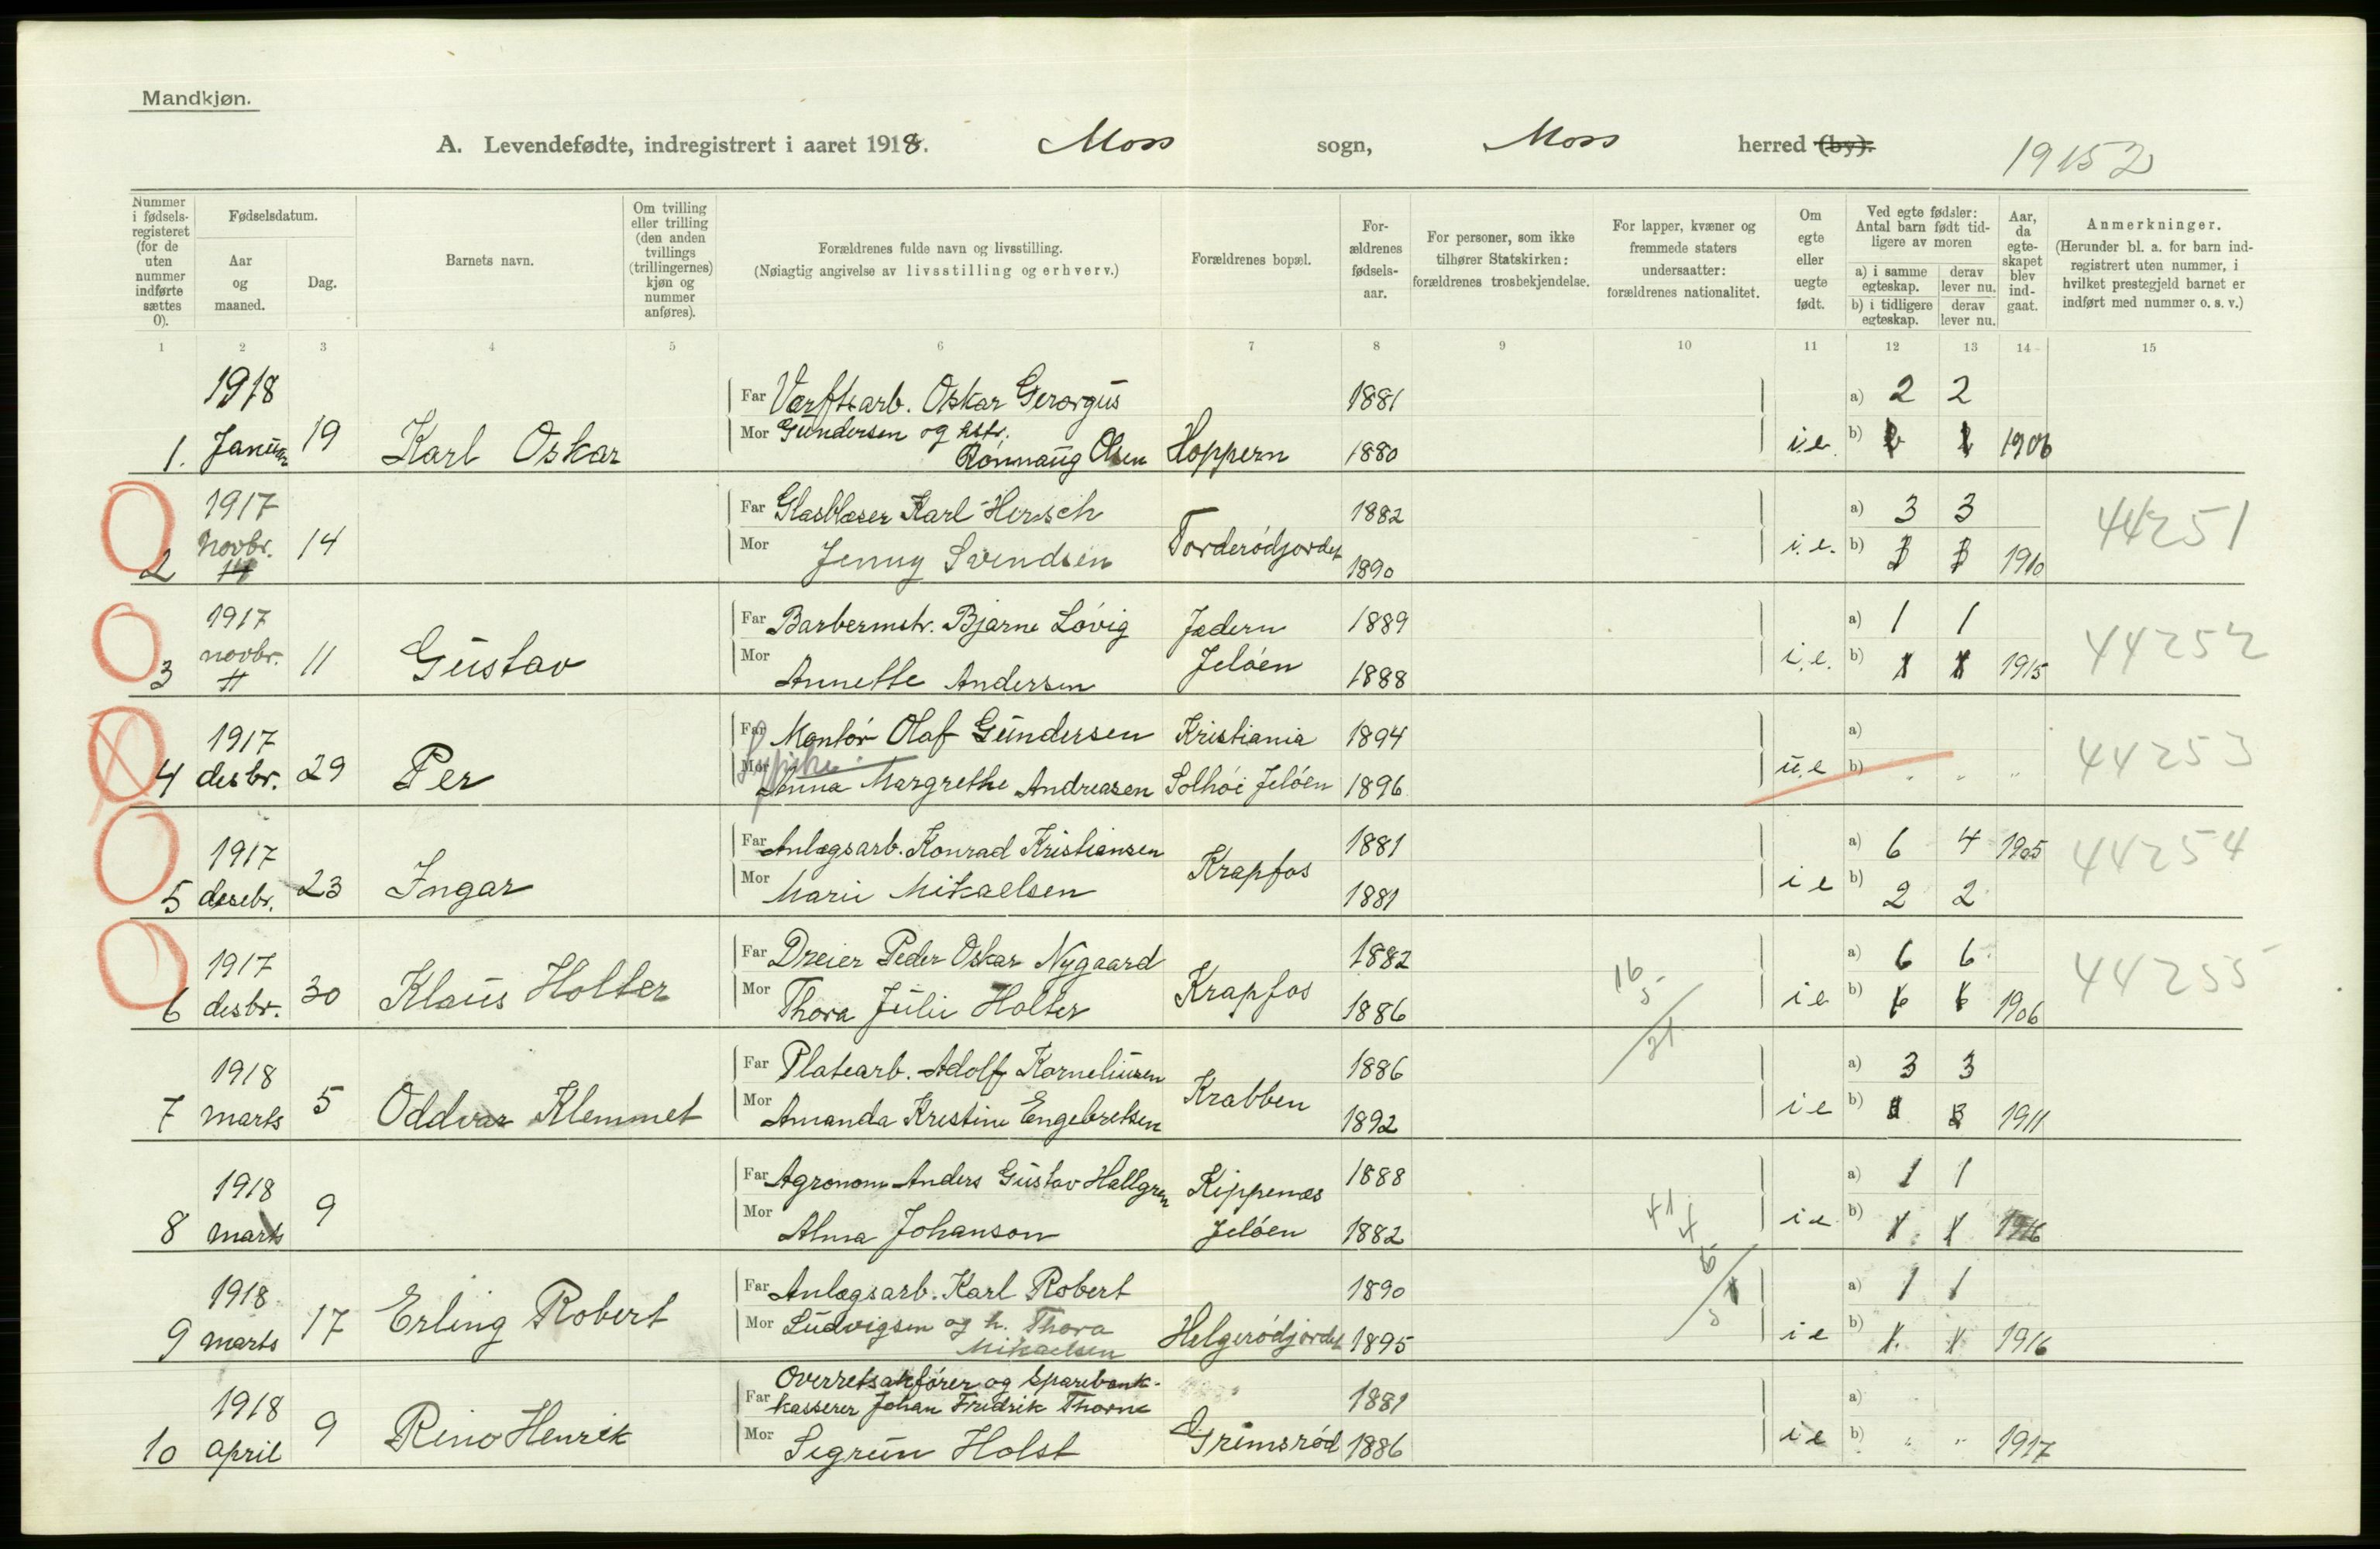 Mandkjøn.
A. Levendefødte, indregistrert i aaret 1918. Moss sogn, Moss herred (by).
19152
Nummer i fødsels-registeret (for de uten nummer indførte sættes 0).
Fødselsdatum.
Aar og maaned.
Dag.
Barnets navn.
Om tvilling eller trilling (den anden tvillings (trillingernes) kjøn og nummer anføres).
Forældrenes fulde navn og livsstilling.
(Nøiagtig angivelse av livsstilling og erhverv.)
Forældrenes bopæl.
For-ældrenes fødsels-aar.
For personer, som ikke tilhører Statskirken: forældrenes trosbekjendelse.
For lapper, kvæner og fremmede staters undersaatter: forældrenes nationalitet.
Om egte eller uegte født.
Ved egte fødsler: Antal barn født tid-ligere av moren
a) i samme egteskap.
derav lever nu.
b) i tidligere egteskap.
derav lever nu.
Aar, da egte-skapet blev ind-gaat.
Anmerkninger.
(Herunder bl. a. for barn ind-registrert uten nummer, i hvilket prestegjeld barnet er indført med nummer o. s. v.)
1 2 3 4 5 6 7 8 9 10 11 12 13 14 15
1918 Far Værftsarb. Oskar Gerorgus 1881 a) 2 2
1. Januar 19 Karl Oskar Mor Gundersen og hstr. Rønnaug Olsen Hoppern 1880 i.e. b) 1906
1917 Far Glasblæser Karl Hersch 1882 a) 3 3 44251
2 Novbr. 14 Mor Jenny Svendsen Torderødjordet 1890 i.e. b) 1910
1917 Far Barbermstr. Bjarne Løvig Jædern 1889 a) 1 1 44252
3 novbr. 11 Gustav Mor Annette Andersen Jeløen 1888 i.e. b) 1915
1917 Far Montør Olaf Gundersen Kristiania 1894 a) 44253
4 desbr. 29 Per Mor Anna Margrethe Andreasen Solhøi Jeløen 1896 u.e b) " " "
1917 Far Anlægsarb. Konrad Kristiansen 1881 a) 6 4 1905 44254
5 desebr. 23 Ingar Mor Marie Mikaelsen Krapfos 1881 i e b) 2 2
1917 Far Dreier Peder Oskar Nygaard 1882 a) 6 6 44255
6 desbr. 30 Klaus Holter Mor Thora Julie Holter Krapfos 1886 i e b) 1906
1918 Far Platearb. Adolf Korneliussen 1886 a) 3 3
7 marts 5 Oddvar Klemmet Mor Amanda Kristine Engebretsen Krabben 1892 i e b) 1911
1918 Far Agronom Anders Gustav Hallgren Kippenæs 1888 a) 1 1
8 marts 9 Mor Alma Johanson Jeløen 1882 i e b) 1916
1918 Far Anlægsarb. Karl Robert 1890 a) 1 1
9 marts 17 Erling Robert Mor Ludvigsen og h. Thora Mikaelsen Helgerødjordet 1895 i e b) 1916
Overretssakfører og Sparebank-
1918 Far kasserer Johan Fredrik Thorne 1881 a)
10 april 9 Rino Henrik Mor Sigrun Holst Grimsrød 1886 i e b) " " 1917